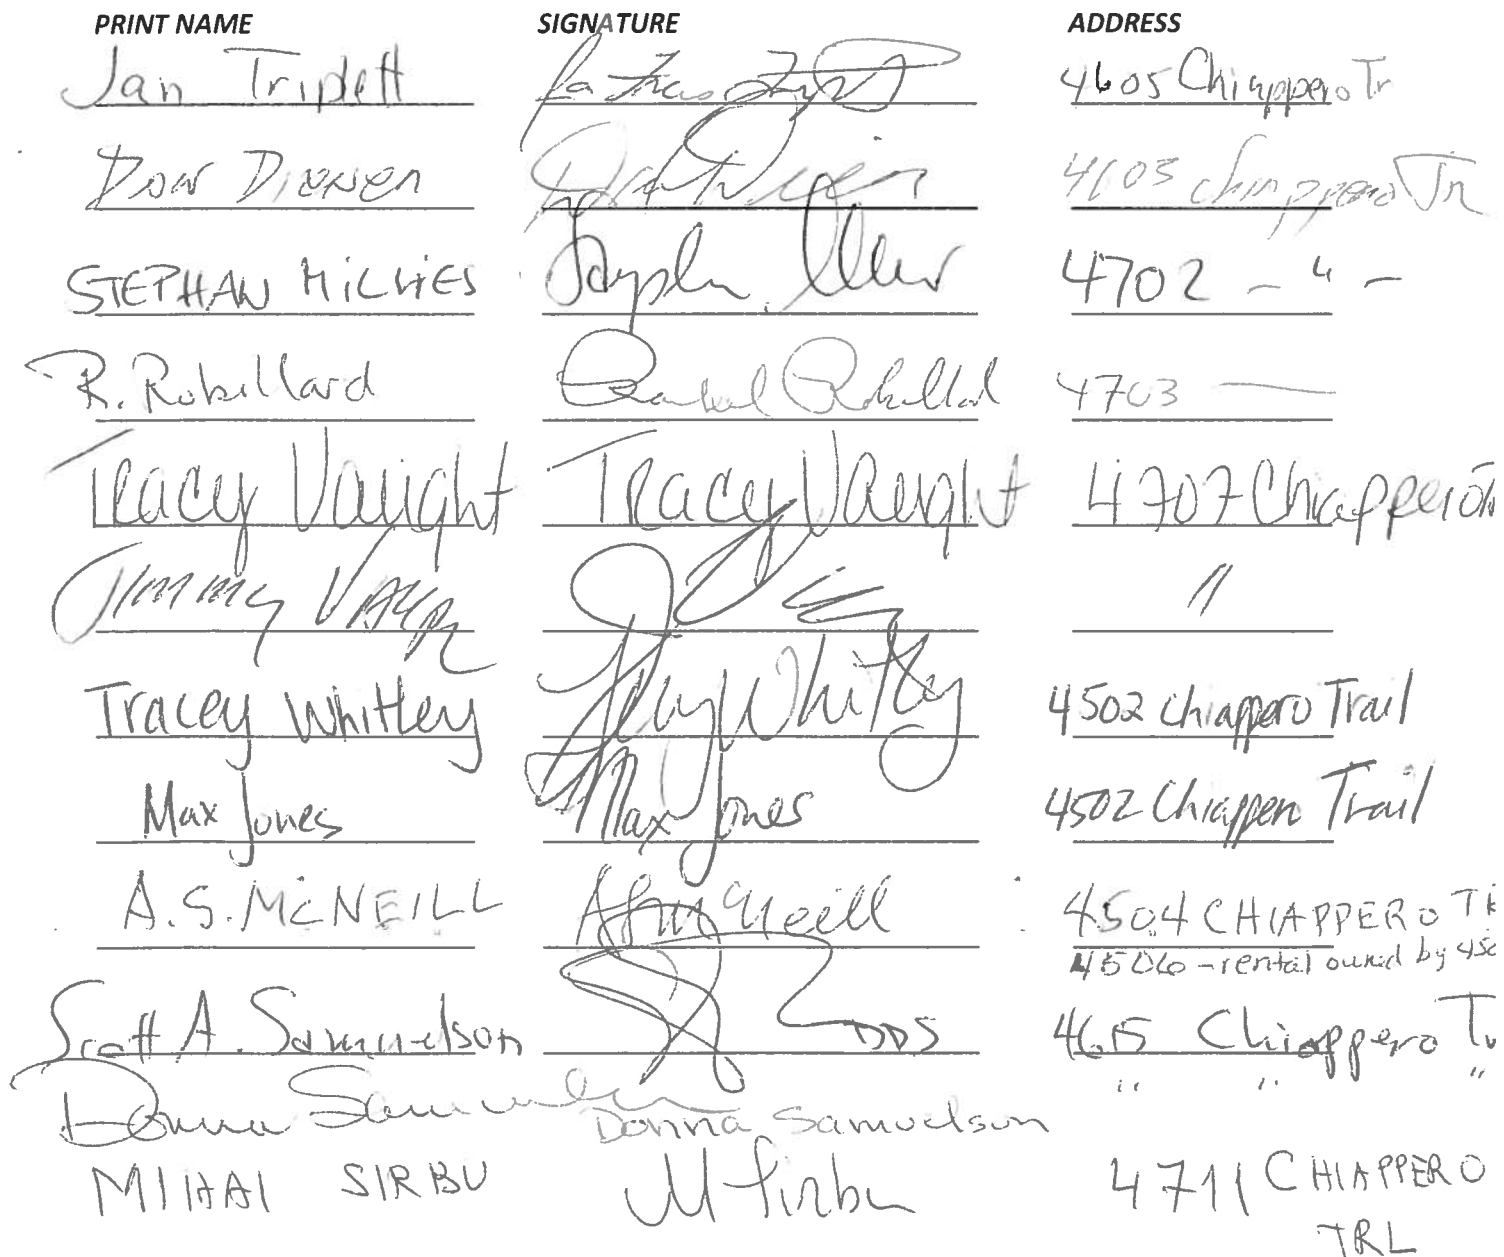 PRINT NAME SIGNATURE ADDRESS
Jan Triplett 4605 Chiappero Tr
Don 4603 Chiappero Tr
STEPHAN MILLIES 4702 - " -
R. Robillard Robillard 4703 —
Tracy Vaught Tracy Vaught 4707 Chiappero Tr
Jimmy "
Tracey Whitley Tracey Whitley 4502 Chiappero Trail
Max Jones Max Jones 4502 Chiappero Trail
A.S. McNEILL ASMcNeill 4504 CHIAPPERO TR
4506 - rental owned by 450
Scott A. Samuelson DDS 4615 Chiappero Tr
Donna Samuelson Donna Samuelson " " "
MIHAI SIRBU M Sirbu 4711 CHIAPPERO
TRL